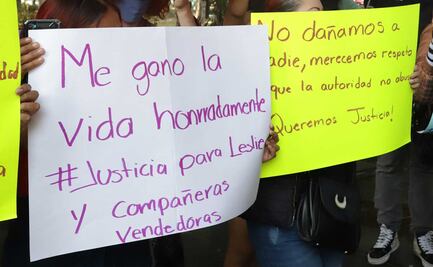 Me gano la
vida honrradamente
#Justicia para Leslie
y compañeras
vendedoras
No dañamos a
adie, merecemos respeto
que la autoridad no abu
Queremos Justicia!
dad